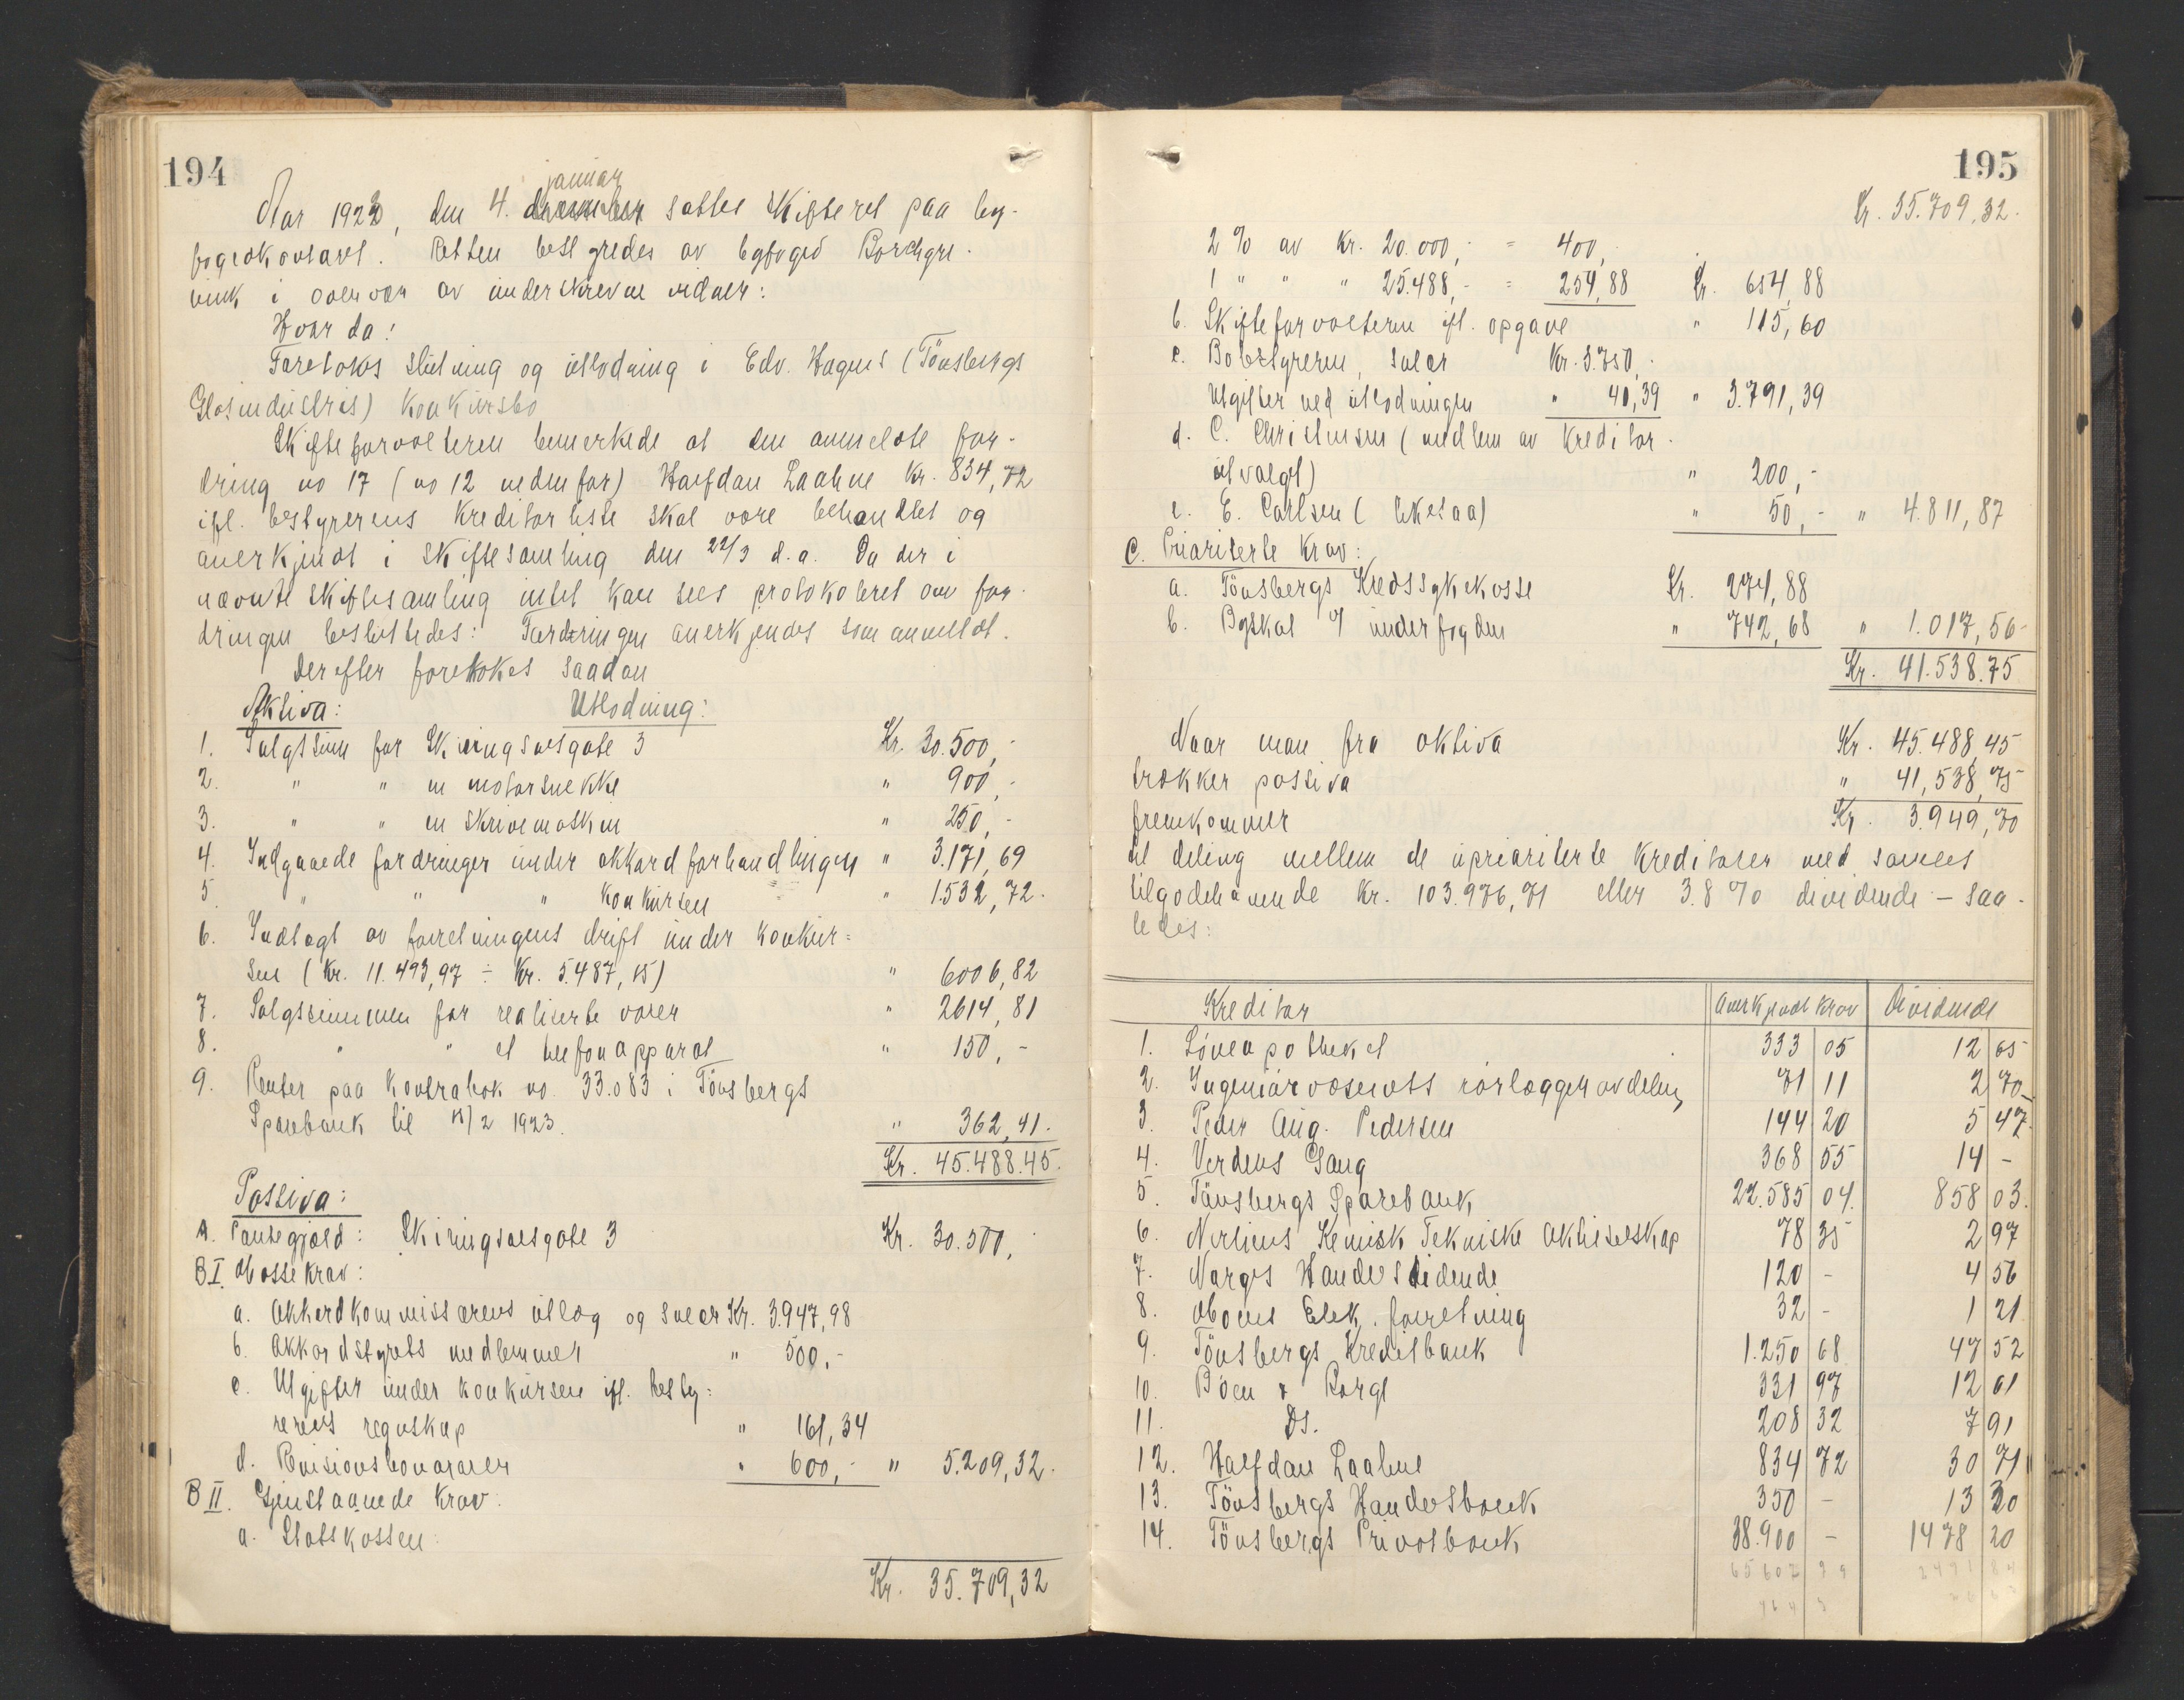 194
januar
Aar 1923, den 4. december sattes Skifteret paa by-
fogedkontoret. Retten bestyredes av byfoged Borchgre-
vink i overvær av underskrevne vidner:
Hvor da:
Foretokes slutning og utlodning i Edv. Hagens (Tönsbergs
Glasindustris) konkursbo
Skifteforvalteren bemerkede at den anmeldte for-
dring no 17 (no 12 nedenfor) Halfdan Laahne kr. 834,72
ifl. bestyrerens kreditorliste skal være behandlet og
anerkjendt i skiftesamling den 22/3 d.a. Da der i
nævnte skiftesamling intet kan sees protokoleret om for-
dringen besluttedes: Fordringen anerkjendes som anmeldt.
Derefter foretokes saadan
Utlodning:
Aktiva:
1. Salgssum for Skiringsalsgate 3 Kr. 30.500,-
2. " " en motorsnekke " 900,-
3. " " en skrivemaskin " 250,-
4. Indgaaede fordringer under akkordforhandlingen " 3.171,69
5. " " " konkursen " 1.532,72.
6. Indtægt av forretningens drift under konkur-
sen (kr. 11.493,97 ÷ kr. 5.487,15) " 6006,82
7. Salgssummen for realiserte varer " 2614,81
8. " " et telefonapparat " 150,-
9. Renter paa kontrabok no. 33.083 i Tönsbergs
Sparebank til 15/2 1923. " 362,41.
Kr. 45.488.45.
Passiva:
A. Pantegjæld: Skiringsalsgate 3 Kr. 30.500,-
B I. Massekrav:
a. Akkordkommissærens utlæg og salær Kr. 3.947,98
b. Akkordstyrets medlemmer " 500,-
c. Utgifter under konkursen ifl. besty-
rerens regnskap " 161,34
d. Revisionshonorarer " 600,- " 5.209,32.
B II. Gjenstaaende krav:
a. Statskassen:
Kr. 35.709,32
195
Kr. 35.709,32.
2 % av Kr. 20.000,- = 400,-
1 " " " 25.488,- = 254,88 Kr. 654,88
b. Skifteforvalteren ifl. opgave " 115,60
c. Bobestyreren, salær Kr. 3.750,-
Utgifter ved utlodningen " 41,39 " 3.791,39
d. C. Christensen (medlem av kreditor-
utvalget) " 200,-
e. E. Carlsen (likesaa) " 50,- " 4.811,87
C. Prioriterte krav:
a. Tönsbergs Kredssykekasse Kr. 274,88
b. Byskat v/ underfogden " 742,68 " 1.017,56-
Kr. 41.538.75
Naar man fra aktiva Kr. 45.488,45
trækker passiva " 41,538,75
fremkommer Kr. 3.949,70
til deling mellem de uprioriterte kreditorer med sammes
tilgodehavende kr. 103.976,71 eller 3.8 % dividende - saa-
ledes:
Kreditor Anerkjendt krav Dividende
1. Löveapotheket 333 05 12 65
2. Ingeniørvæsenets rørlæggeravdeling 71 11 2 70
3. Peder Aug. Pedersen 144 20 5 47
4. Verdens Gang 368 55 14 -
5. Tönsbergs Sparebank 22.585 04. 858 03.
6. Nerliens Kemisk Tekniske Aktieselskap 78 35 2 97
7. Norges Handelstidende 120 - 4 56
8. Moens Elek. forretning 32 - 1 21
9. Tönsbergs Kreditbank 1.250 68 47 52
10. Böen & Borge 331 97 12 61
11. Ds. 208 32 7 91
12. Halfdan Laahne 834 72 30 71
13. Tönsbergs Handelsbank 350 - 13 30
14. Tönsbergs Privatbank 38.900 - 1478 20